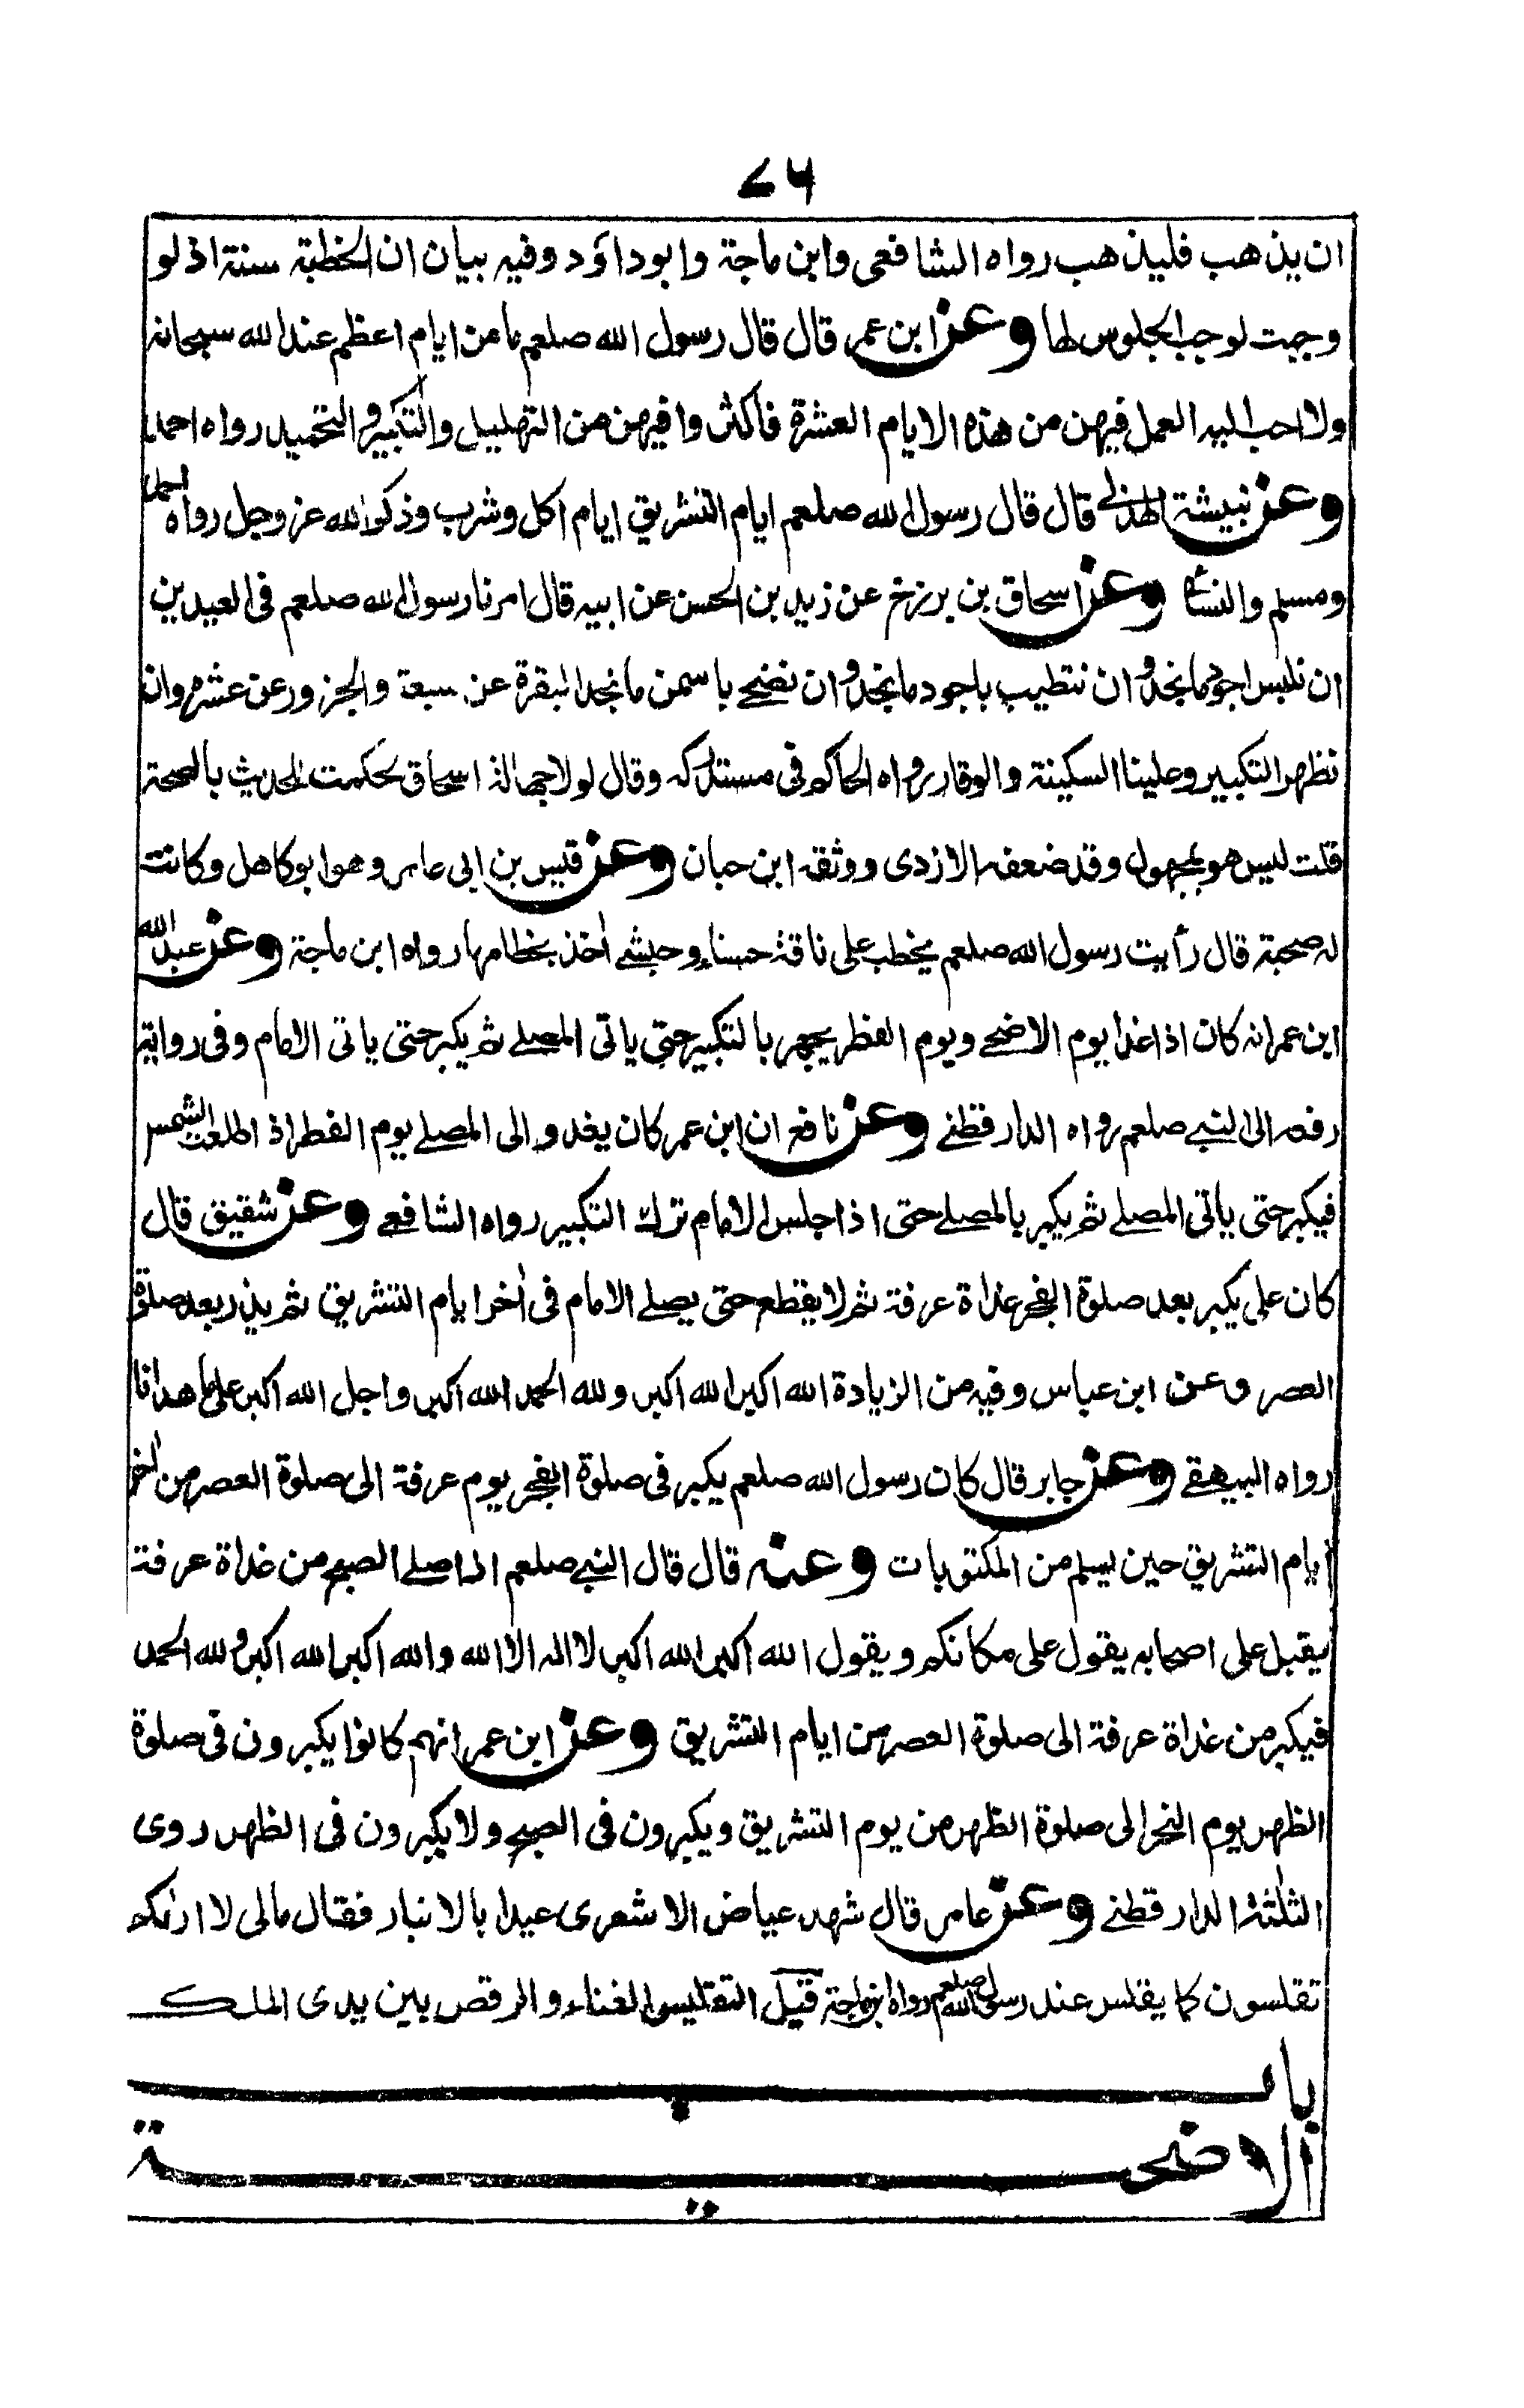 ٧٦
ان يذهب فليذهب رواه الشافعى وابن ماجة وابوداؤد وفيه بيان ان الخطبة سنة اذ لو
وجبت لوجب الجلوس لها وعن ابن عمر قال قال رسول الله صلعم ما من ايام اعظم عند الله سبحانه
ولا احب اليه العمل فيهن من هذه الايام العشرة فاكثروا فيهن من التهليل والتكبير والتحميد رواه احمد
وعن نبيشة الهذلى قال قال رسول الله صلعم ايام التشريق ايام اكل وشرب وذكر الله عز وجل رواه احمد
ومسلم والنسائ وعن اسحاق بن برزخ عن زيد بن الحسن عن ابيه قال امرنا رسول الله صلعم فى العيدين
ان نلبس اجود ما نجد وان نتطيب باجود ما نجد وان نضحے باسمن ما نجد البقرة عن سبعة والجزور عن عشرة وان
نظهر التكبير وعلينا السكينة والوقار رواه الحاكم فى مستدركه وقال لولا جهالة اسحاق لحكمت للحديث بالصحة
قلت ليس هو بمجهول وقد ضعفه الازدى ووثقه ابن حبان وعن قيس بن ابى عامر وهو ابو كاهل وكانت
له صحبة قال رأيت رسول الله صلعم يخطب على ناقة حسناء وحبشے اٰخذ بخطامها رواه ابن ماجة وعن عبد الله
ابن عمر انه كان اذا غدا يوم الاضحے ويوم الفطر يجهر بالتكبير حتى ياتى المصلے ثم يكبر حتى ياتى الامام وفى رواية
رفعه الى النبے صلعم رواه الدارقطنے وعن نافع ان ابن عمر كان يغدو الى المصلے يوم الفطر اذ اطلعت الشمس
فيكبر حتى ياتى المصلے ثم يكبر بالمصلے حتى اذا جلس الامام ترك التكبير رواه الشافعے وعن شقيق قال
كان على يكبر بعد صلوة الفجر غداة عرفة ثم لا يقطع حتى يصلے الامام فى اٰخر ايام التشريق ثم يذر بعد صلوة
العصر وعن ابن عباس وفيه من الزيادة الله اكبر الله اكبر ولله الحمد الله اكبر واجل الله اكبر على ما هدانا
رواه البيهقے وعن جابر قال كان رسول الله صلعم يكبر فى صلوة الفجر يوم عرفة الى صلوة العصر من اٰخر
ايام التشريق حين يسلم من المكتوبات وعنه قال قال النبے صلعم اذا صلے الصبح من غداة عرفة
يقبل على اصحابه يقول على مكانكم ويقول الله اكبر الله اكبر لا اله الا الله والله اكبر الله اكبر ولله الحمد
فيكبر من غداة عرفة الى صلوة العصر من ايام التشريق وعن ابن عمر انهم كانوا يكبرون فى صلوة
الظهر يوم النحر الى صلوة الظهر من يوم التشريق ويكبرون فى الصبح ولا يكبرون فى الظهر روى
الثلثة الدارقطنے وعن عامر قال شهد عياض الاشعرى عيدا بالانبار فقال مالى لا ارٰىكم
تقلسون كما يقلس عند رسول الله صلعم رواه ابن ماجة قيل التقليس الغناء والرقص بين يدى الملك
باب
الاضحية